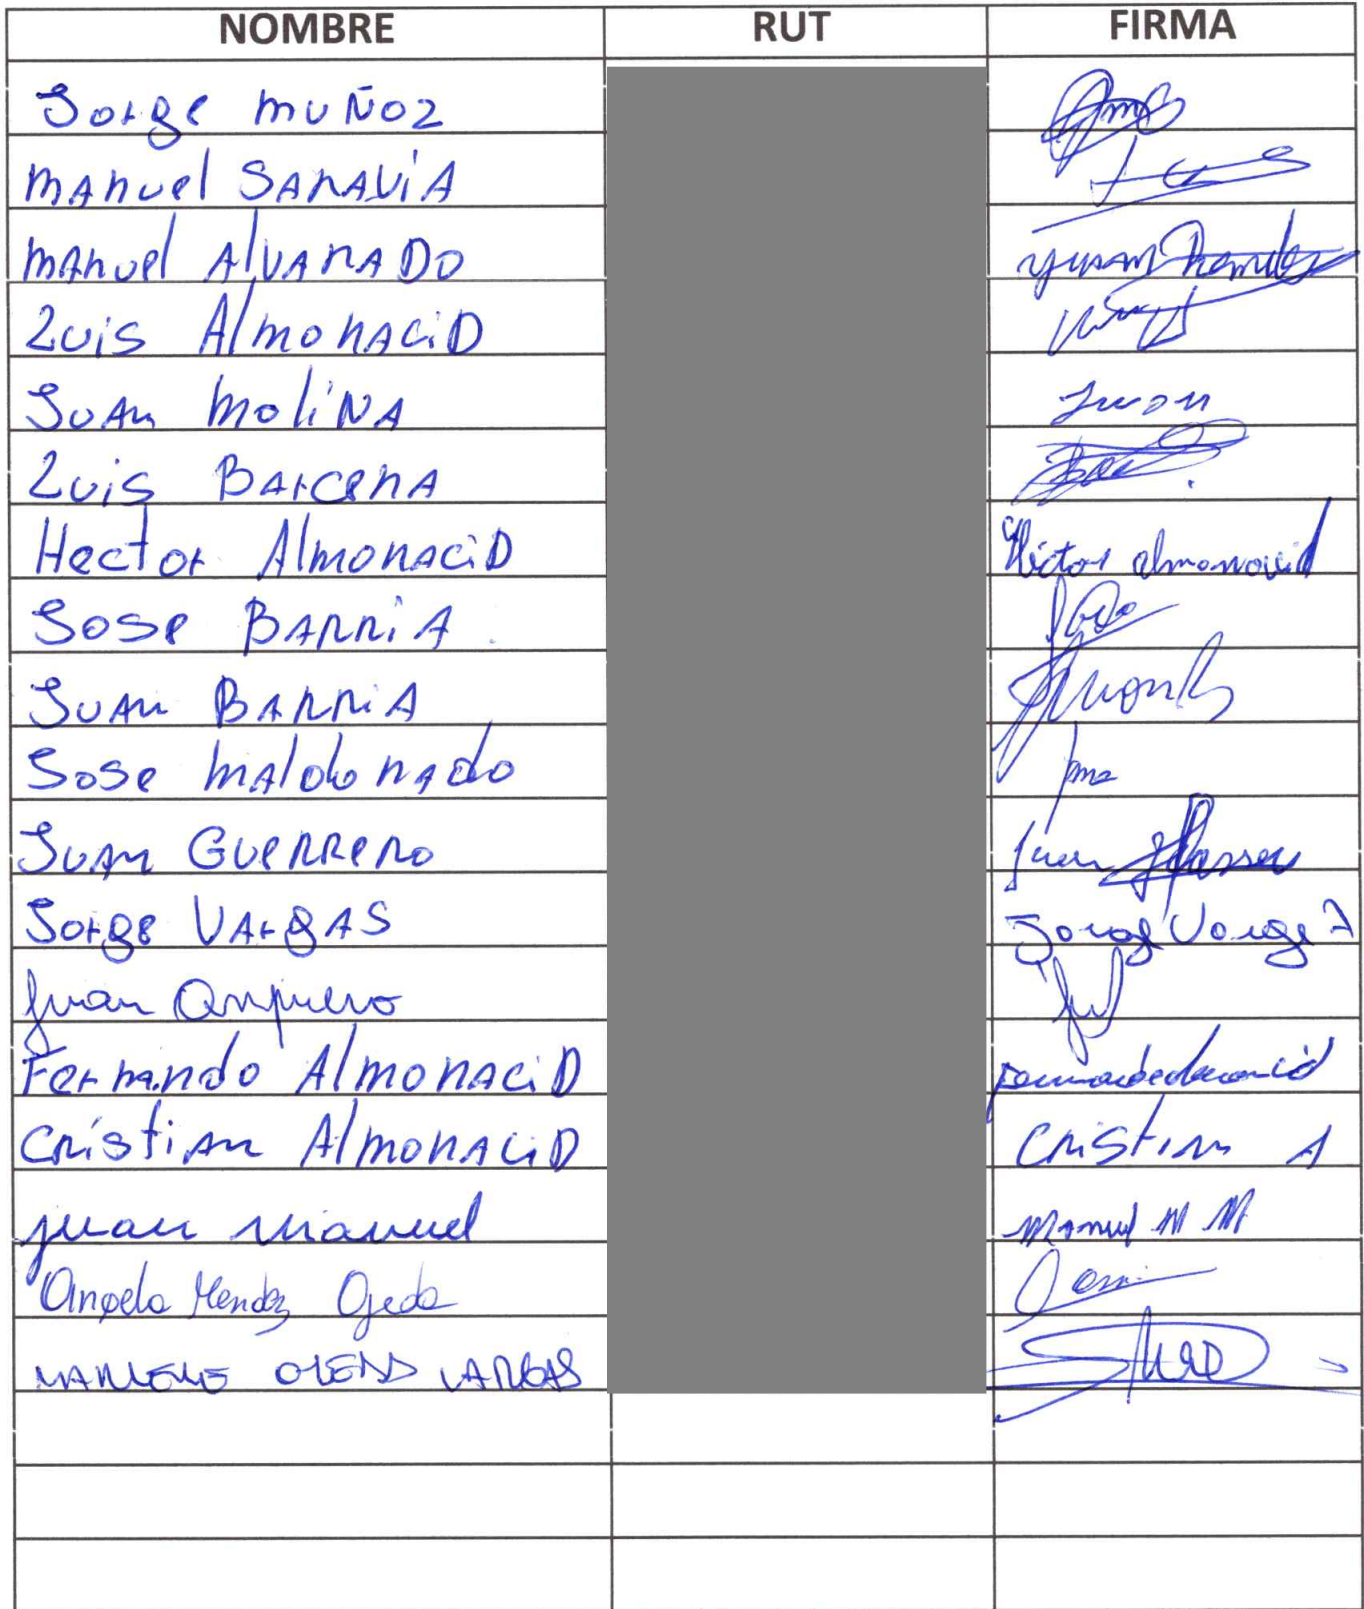 NOMBRE RUT FIRMA
Jorge MUÑOZ
MANUEL SARAVIA
MANUEL ALVARADO
Luis AlmonaciD
JUAN MoliNA
Luis BARCENA
Hector AlmonaciD Héctor almonacid
Jose BARRIA
JUAN BARRIA
Jose MAldonado
JUAN GUERRERO Juan
Jorge VARGAS Jorge Vargas
Juan Ampuero
Fernando AlmonaciD
Cristian AlmonaciD Cristian A
juan manuel Manuel M M
Angela Mendez Ojeda
VARGAS